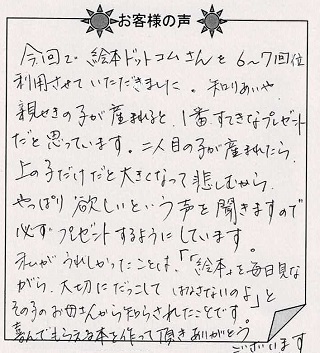 お客様の声
今回で、絵本ドットコムさんを6〜7回位
利用させていただきました。知りあいや
親せきの子が産まれると、1番すてきなプレゼント
だと思っています。二人目の子が産まれたら、
上の子だけだと大きくなって悲しむから、
やっぱり欲しいという声を聞きますので
必ずプレゼントするようにしています。
私がうれしかったことは、「「絵本」を毎日見な
がら、大切にだっこして はなさないのよ」と
その子のお母さんから知らされたことです。
喜んでもらえる本を作って頂きありがとう
ございます